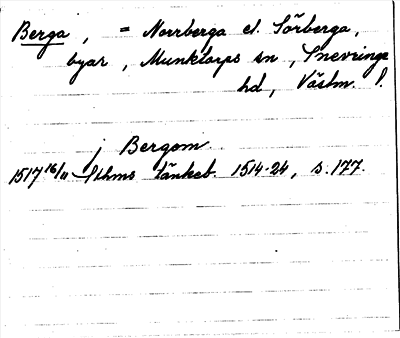 Berga, = Norrberga el. Sörberga,
byar, Munktorps sn, Snevringe
hd, Västm. l.
j Bergom
1517 16/11 Sthms tänkeb. 1514-24, s. 177.